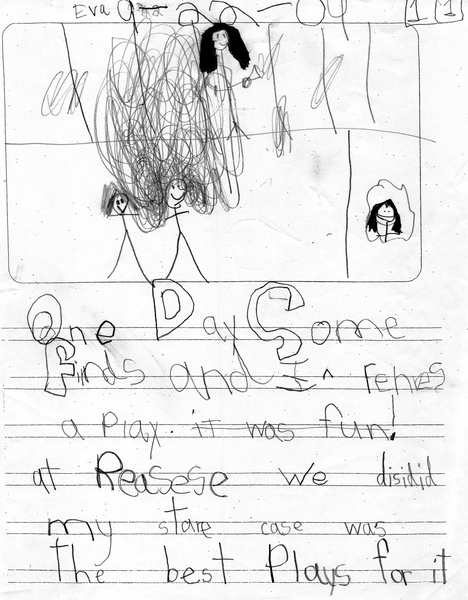 Eva 9-22-04 11
One Day Some
Finds and I ^ rehres
a Play. it was fun!
at Reasese we disidid
my stare case was
The best Plays for it